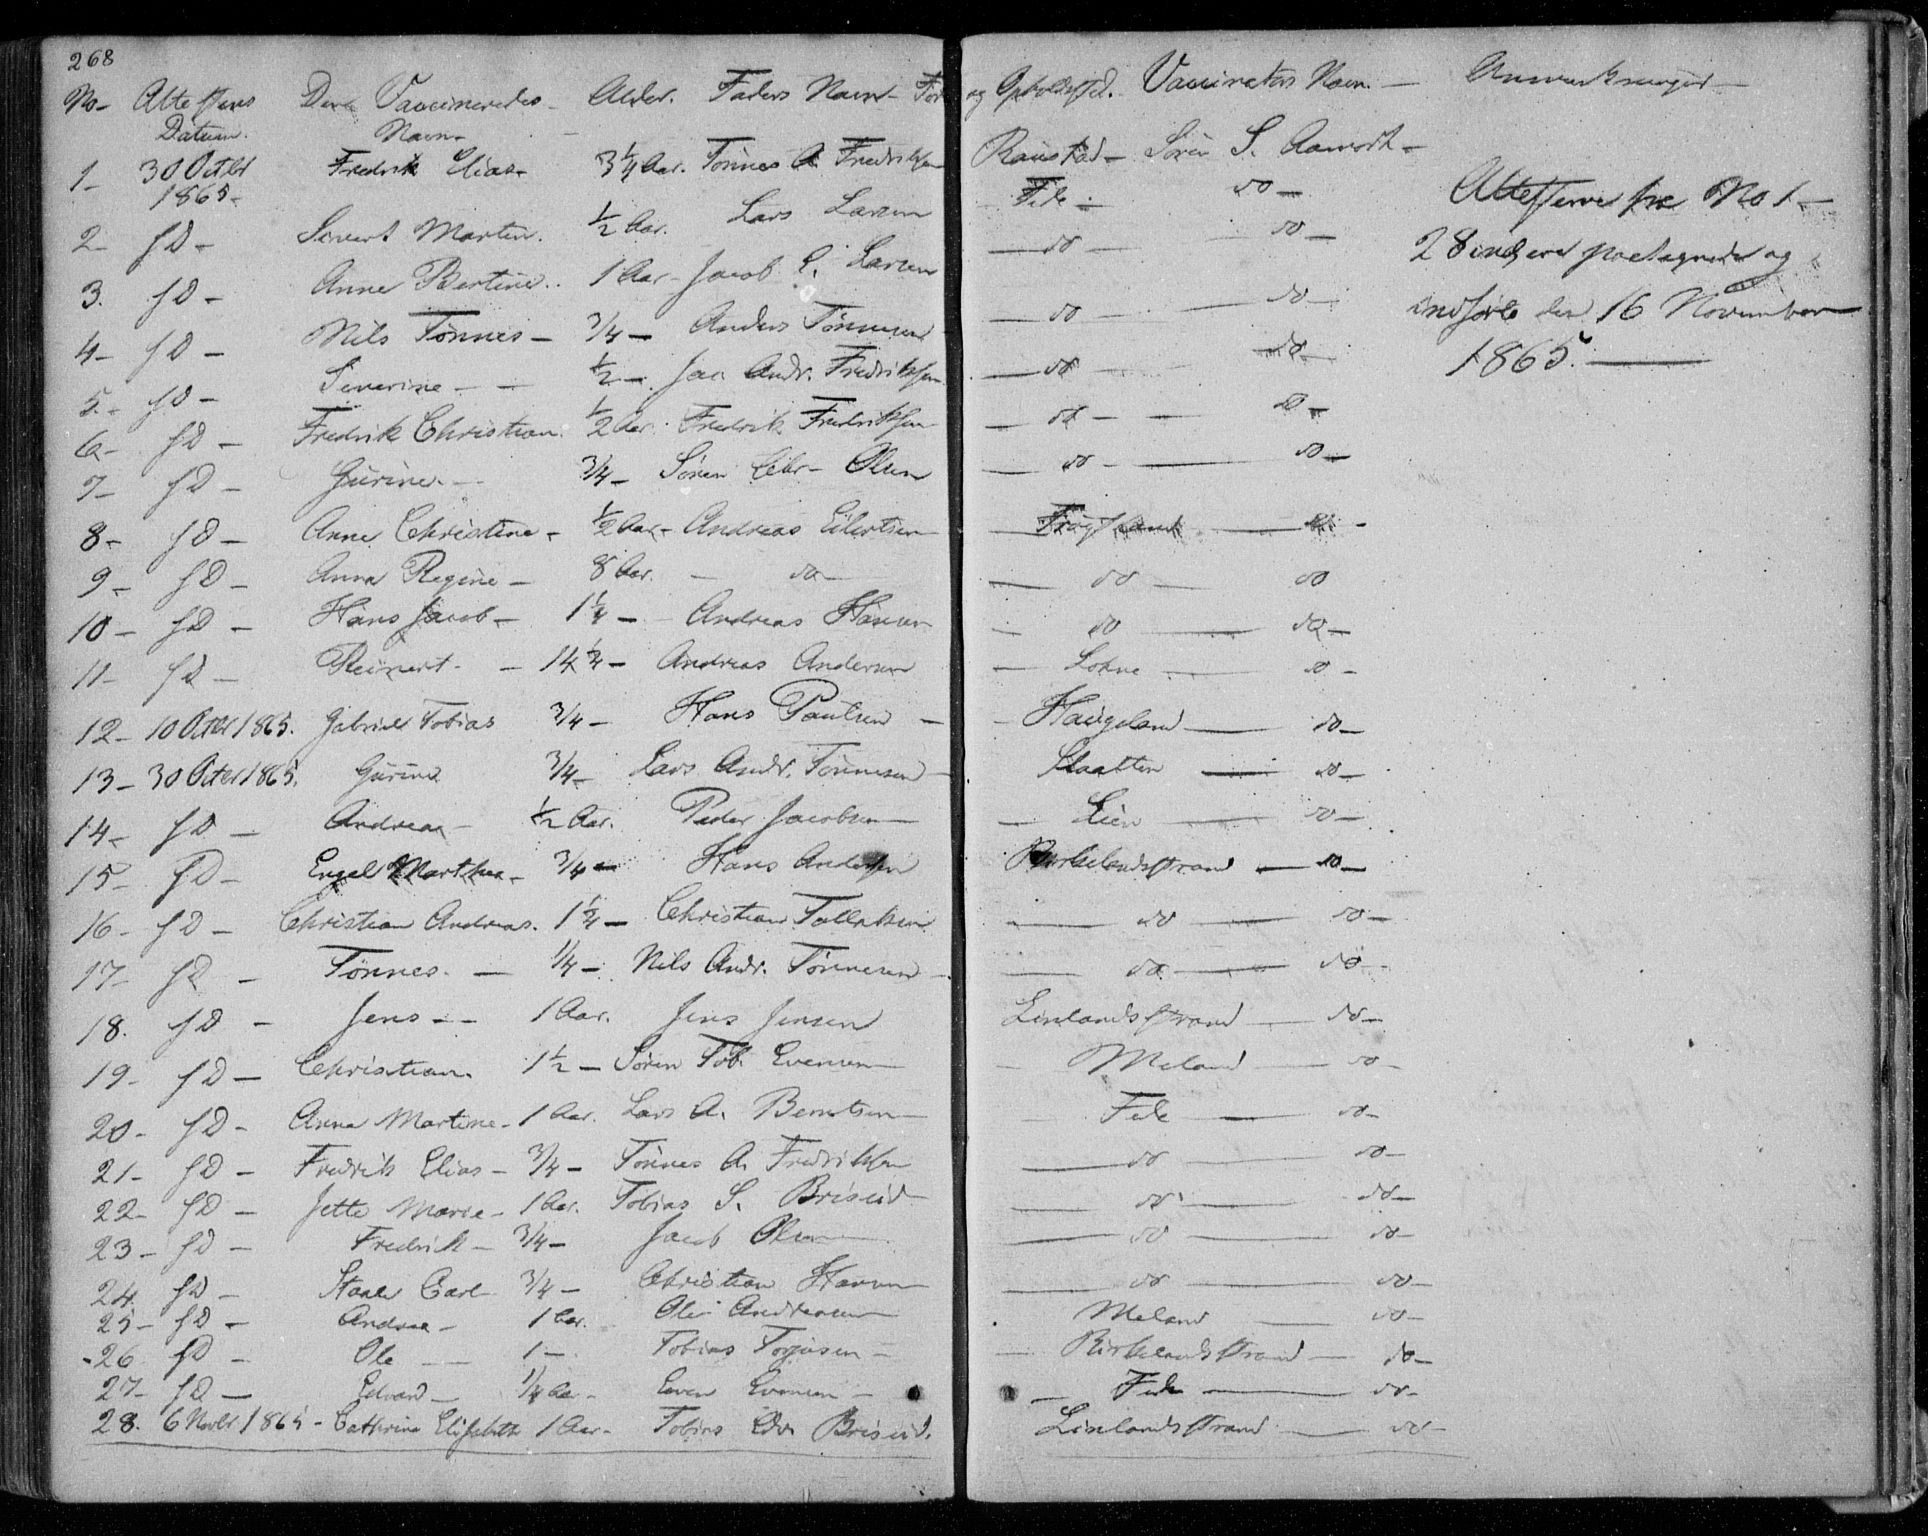 268
No - Attestens Datum. Den Vaccineredes Navn - Alder. Faders Navn - og Opholdssted. Vaccinators Navn. - Anmærkninger -
1 - 30 Octbr 1865 - Fredrik Elias - 3 1/4 Aar. Tönnes A Fredriksen Raustad - Sören S. Aamodt -
2 - SD - Sivert Martin. 1/2 Aar. Lars Larsen Fede - do -
3. SD - Anne Bertine. 1 Aar - Jacob L. Larsen - do - do -
4 - SD - Nils Tönnes - 3/4 - Anders Tönnesen - do - do -
5 - SD - Severine - - 1/2 - Jan Andr. Fredriksen - do - do -
6 - SD - Fredrik Christian. 1/2 Aar. Fredrik Fredriksen - do - do -
7 - SD - Gurine - 3/4 - Sören Chr - Olsen - do - do -
8 - SD - Anne Christine - 1/2 Aar - Andreas Eilertsen - do -
9 - SD - Anna Regine - 8 Aar. - do - do - do
10 - SD - Hans Jacob - 1 1/4 - Andreas Hansen - do - do -
11 - SD - Reinert - 14 1/4 - Andreas Andersen - Lohne - do -
12 - 10 Octbr 1865. Gabriel Tobias 3/4 - Hans Paulsen - Haugeland - do -
13 - 30 Octbr 1865. Gurine 3/4 - Lars Andr. Tönnesen - Slaatten - do -
14 - SD - Andreas - 1/2 Aar. Peder Jacobsen - Lien - do -
15 - SD - Engel Marthea - 3/4 - Hans Andersen Birkelandsstrand - do -
16 - SD - Christian Andreas. 1 1/4 - Christian Tallaksen - do - do -
17 - SD - Tönnes. - 1/4 - Nils Andr. Tönnesen - do - do -
18. SD - Jens - - 1 Aar. Jens Jensen Linlandsstrand - do -
19 - SD - Christian. 1 1/2 - Sören Tob. Evensen - Meland - do -
20 - SD - Anna Martine - 1 Aar. Lars A. Berntsen - Fede - do -
21 - SD - Fredrik Elias - 3/4 - Tönnes A. Fredriksen - do - do -
22 - SD - Jette Marie - 1 Aar. Tobias S. Briseid - do - do -
23 - SD - Fredrik - 3/4 - Jacob Olsen - do - do -
24. SD - Staale Carl - 3/4 - Christian Hansen - do - do -
25 - SD - Andrea - 1 Aar. Ole Andreasen - Meland - do -
26 SD - Ole - 1 - Tobias Torjusen - Birkelandsstrand - do -
27 - SD - Edvard - 1/4 Aar - Even Evensen - Fede - do -
28. 6 Novbr. 1865 - Cathrine Elisabeth 1 Aar - Tobias Edv. Briseid. Linlandsstrand - do -
Attesterne fra No 1 -
28 incl ere paategnede og
indförte den 16 November
1865.